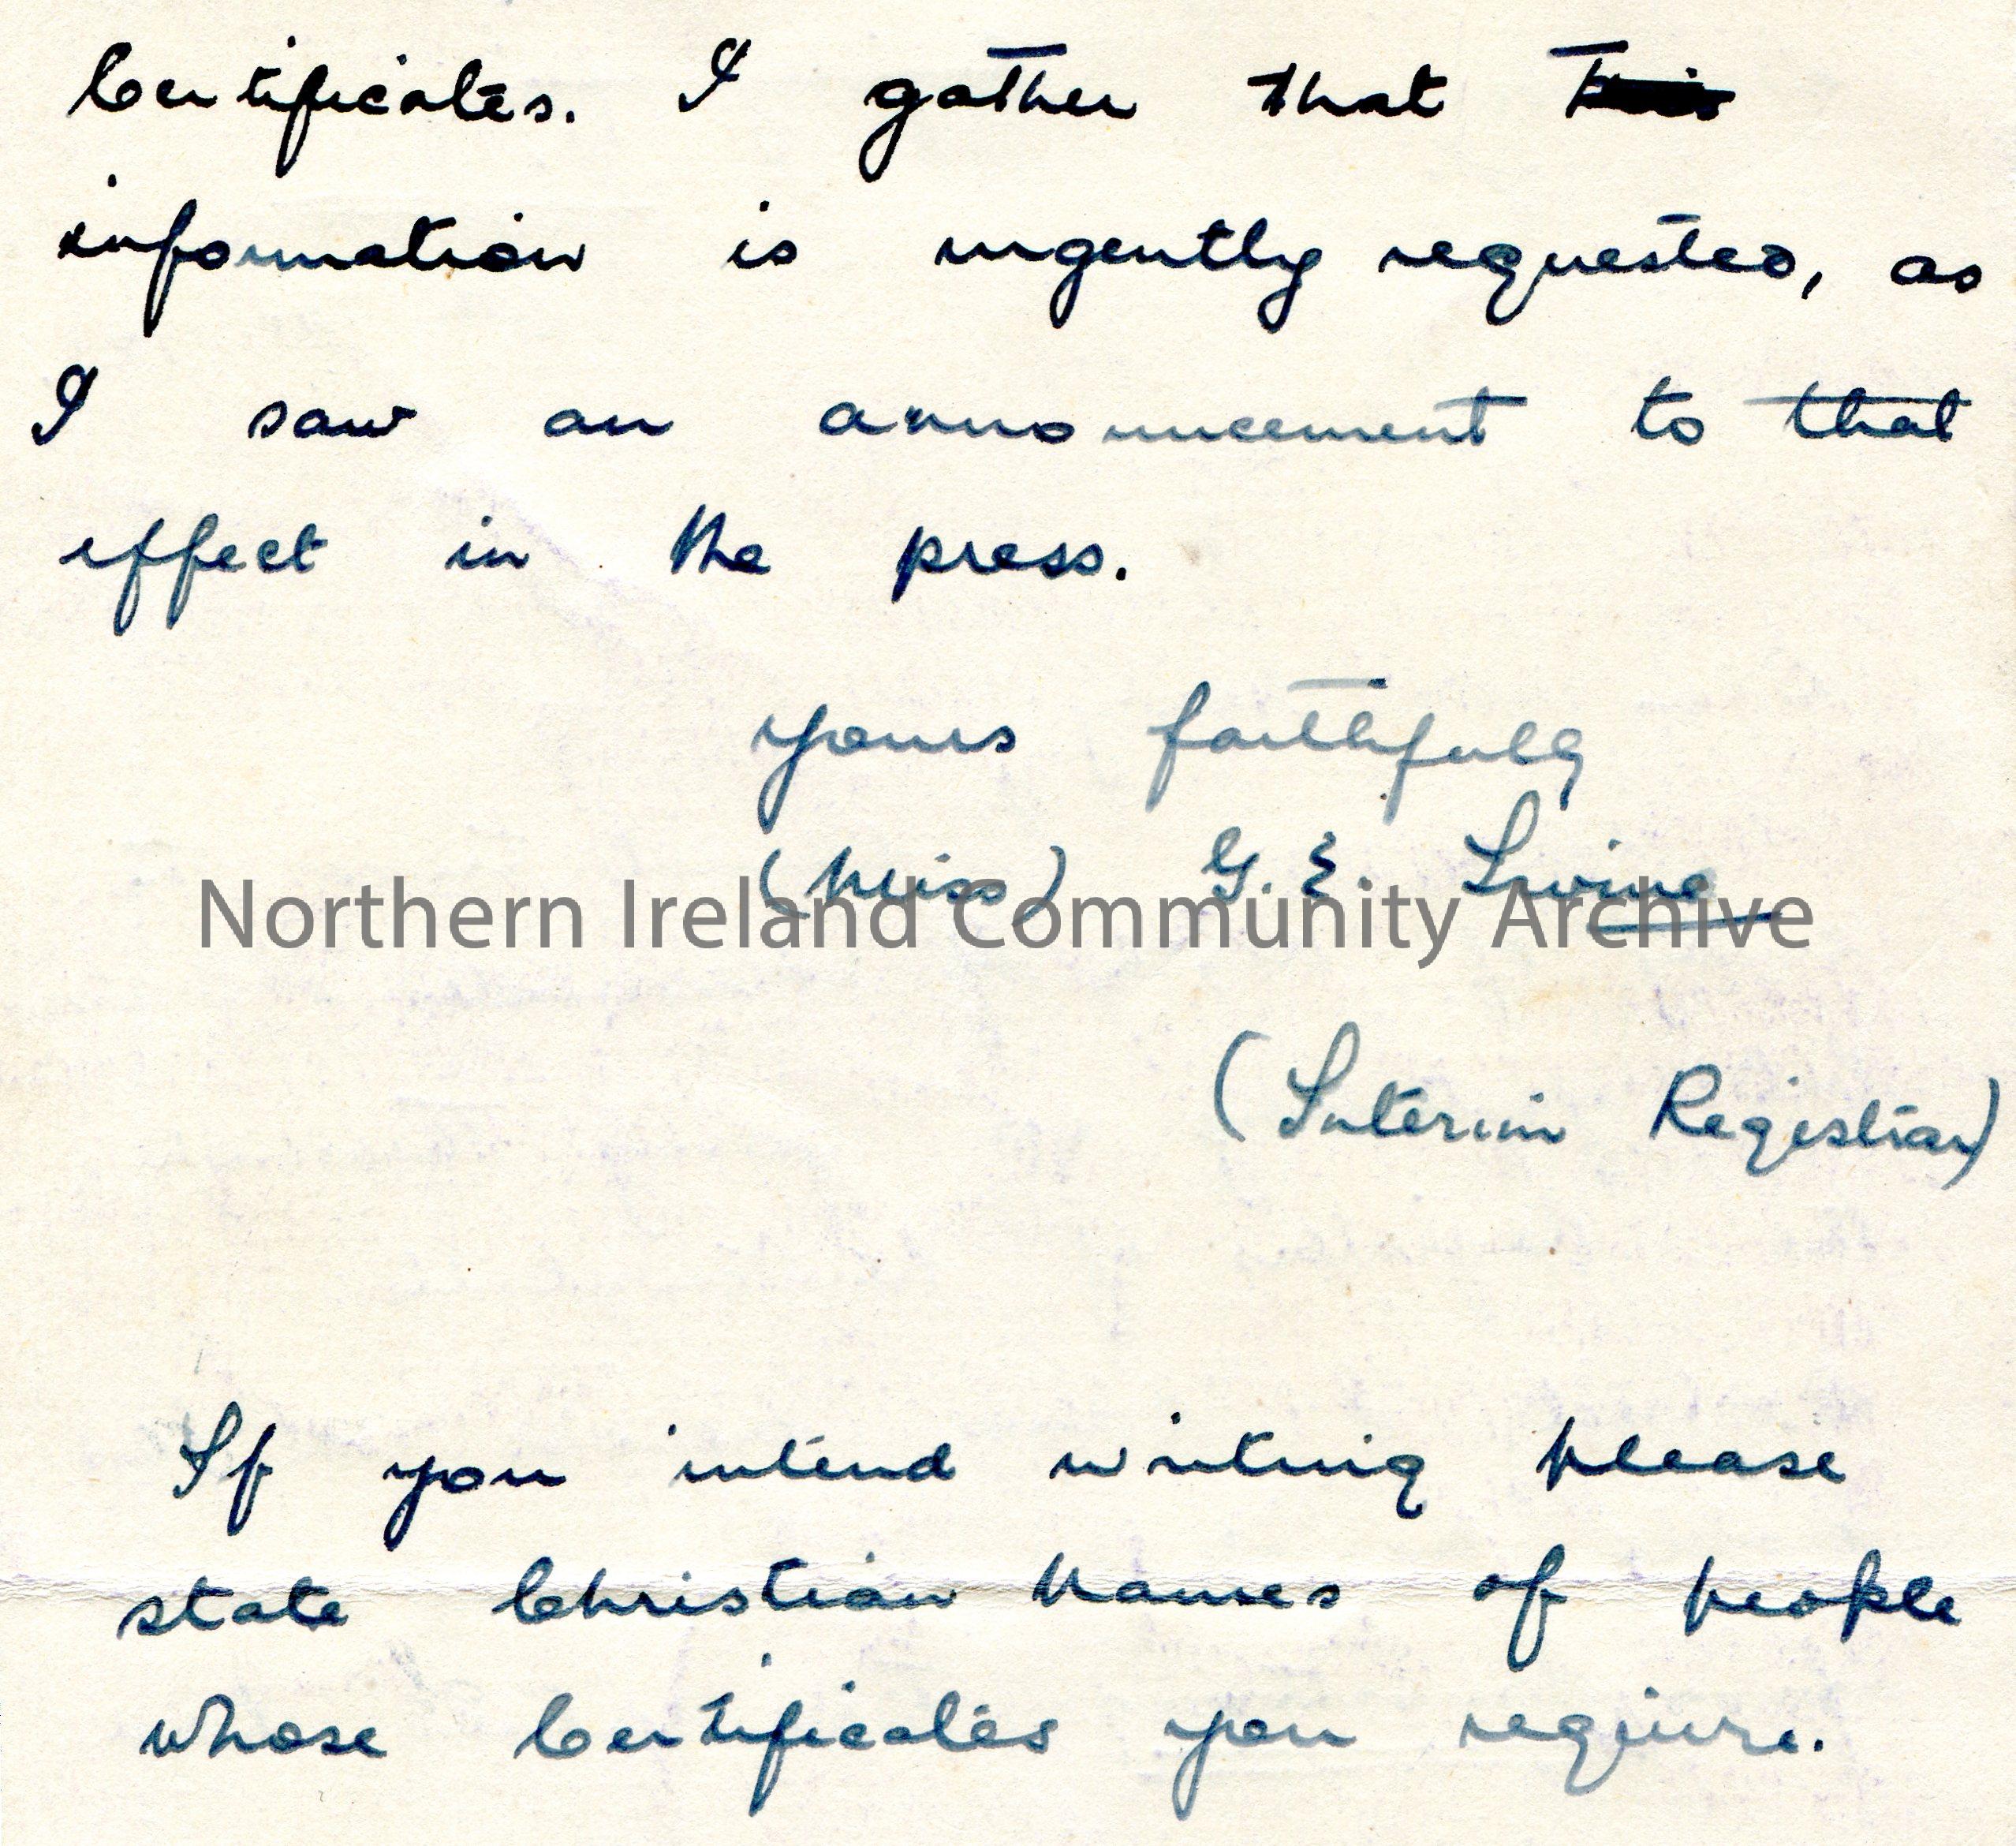 Certificates. I gather that this
information is urgently requested, as
I saw an announcement to that
effect in the press.
yours faithfully
(Miss) G. E. Irvine
Northern Ireland Community Archive
(Interim Registrar)
If you intend writing please
state Christian names of people
whose Certificates you require.